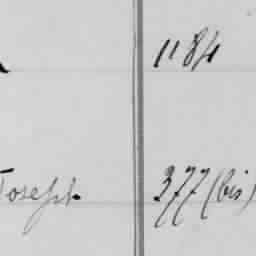 1184
Joseph 377 (bis)